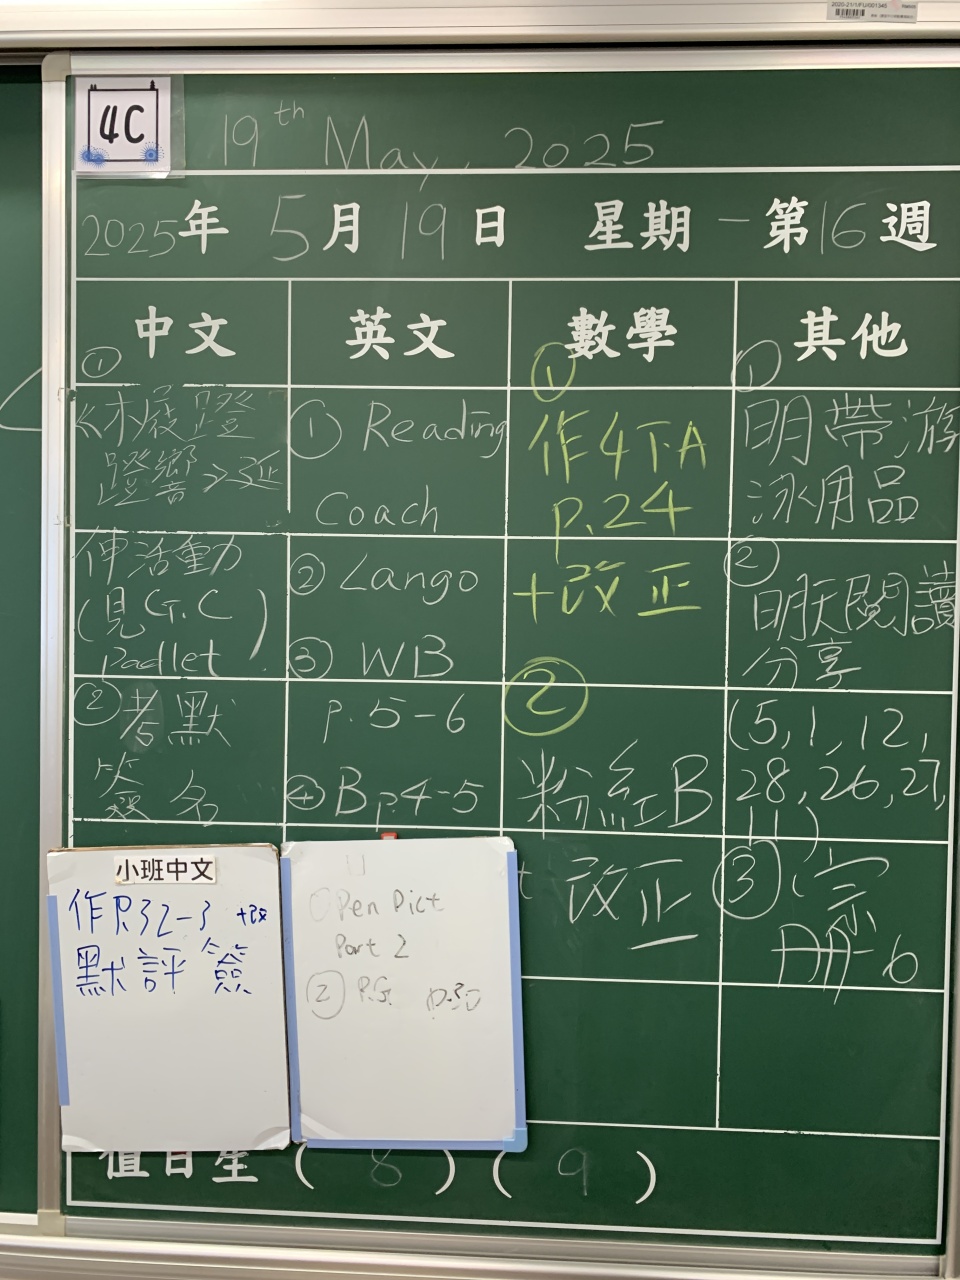 2020-21/1/FU/001345
4C
19th May, 2025
2025年 5月 19日 星期一 第16週
中文
①
《木屐蹬
蹬響》延
伸活動
(見G.C
padlet)
② 考默
簽名
英文
① Reading
Coach
② Lango
③ WB
p.5-6
④ B p.4-5
數學
①
作4下A
p.24
+改正
②
粉紅B
+ 改正
其他
①
明帶游
泳用品
②
明天閱讀
分享
(5, 1, 12,
28, 26, 27,
11)
③ 宗
冊6
小班中文
作P.32-3 +改
默評簽
① Pen Dict
Part 2
② P.G. p.30
值日生 ( 8 ) ( 9 )